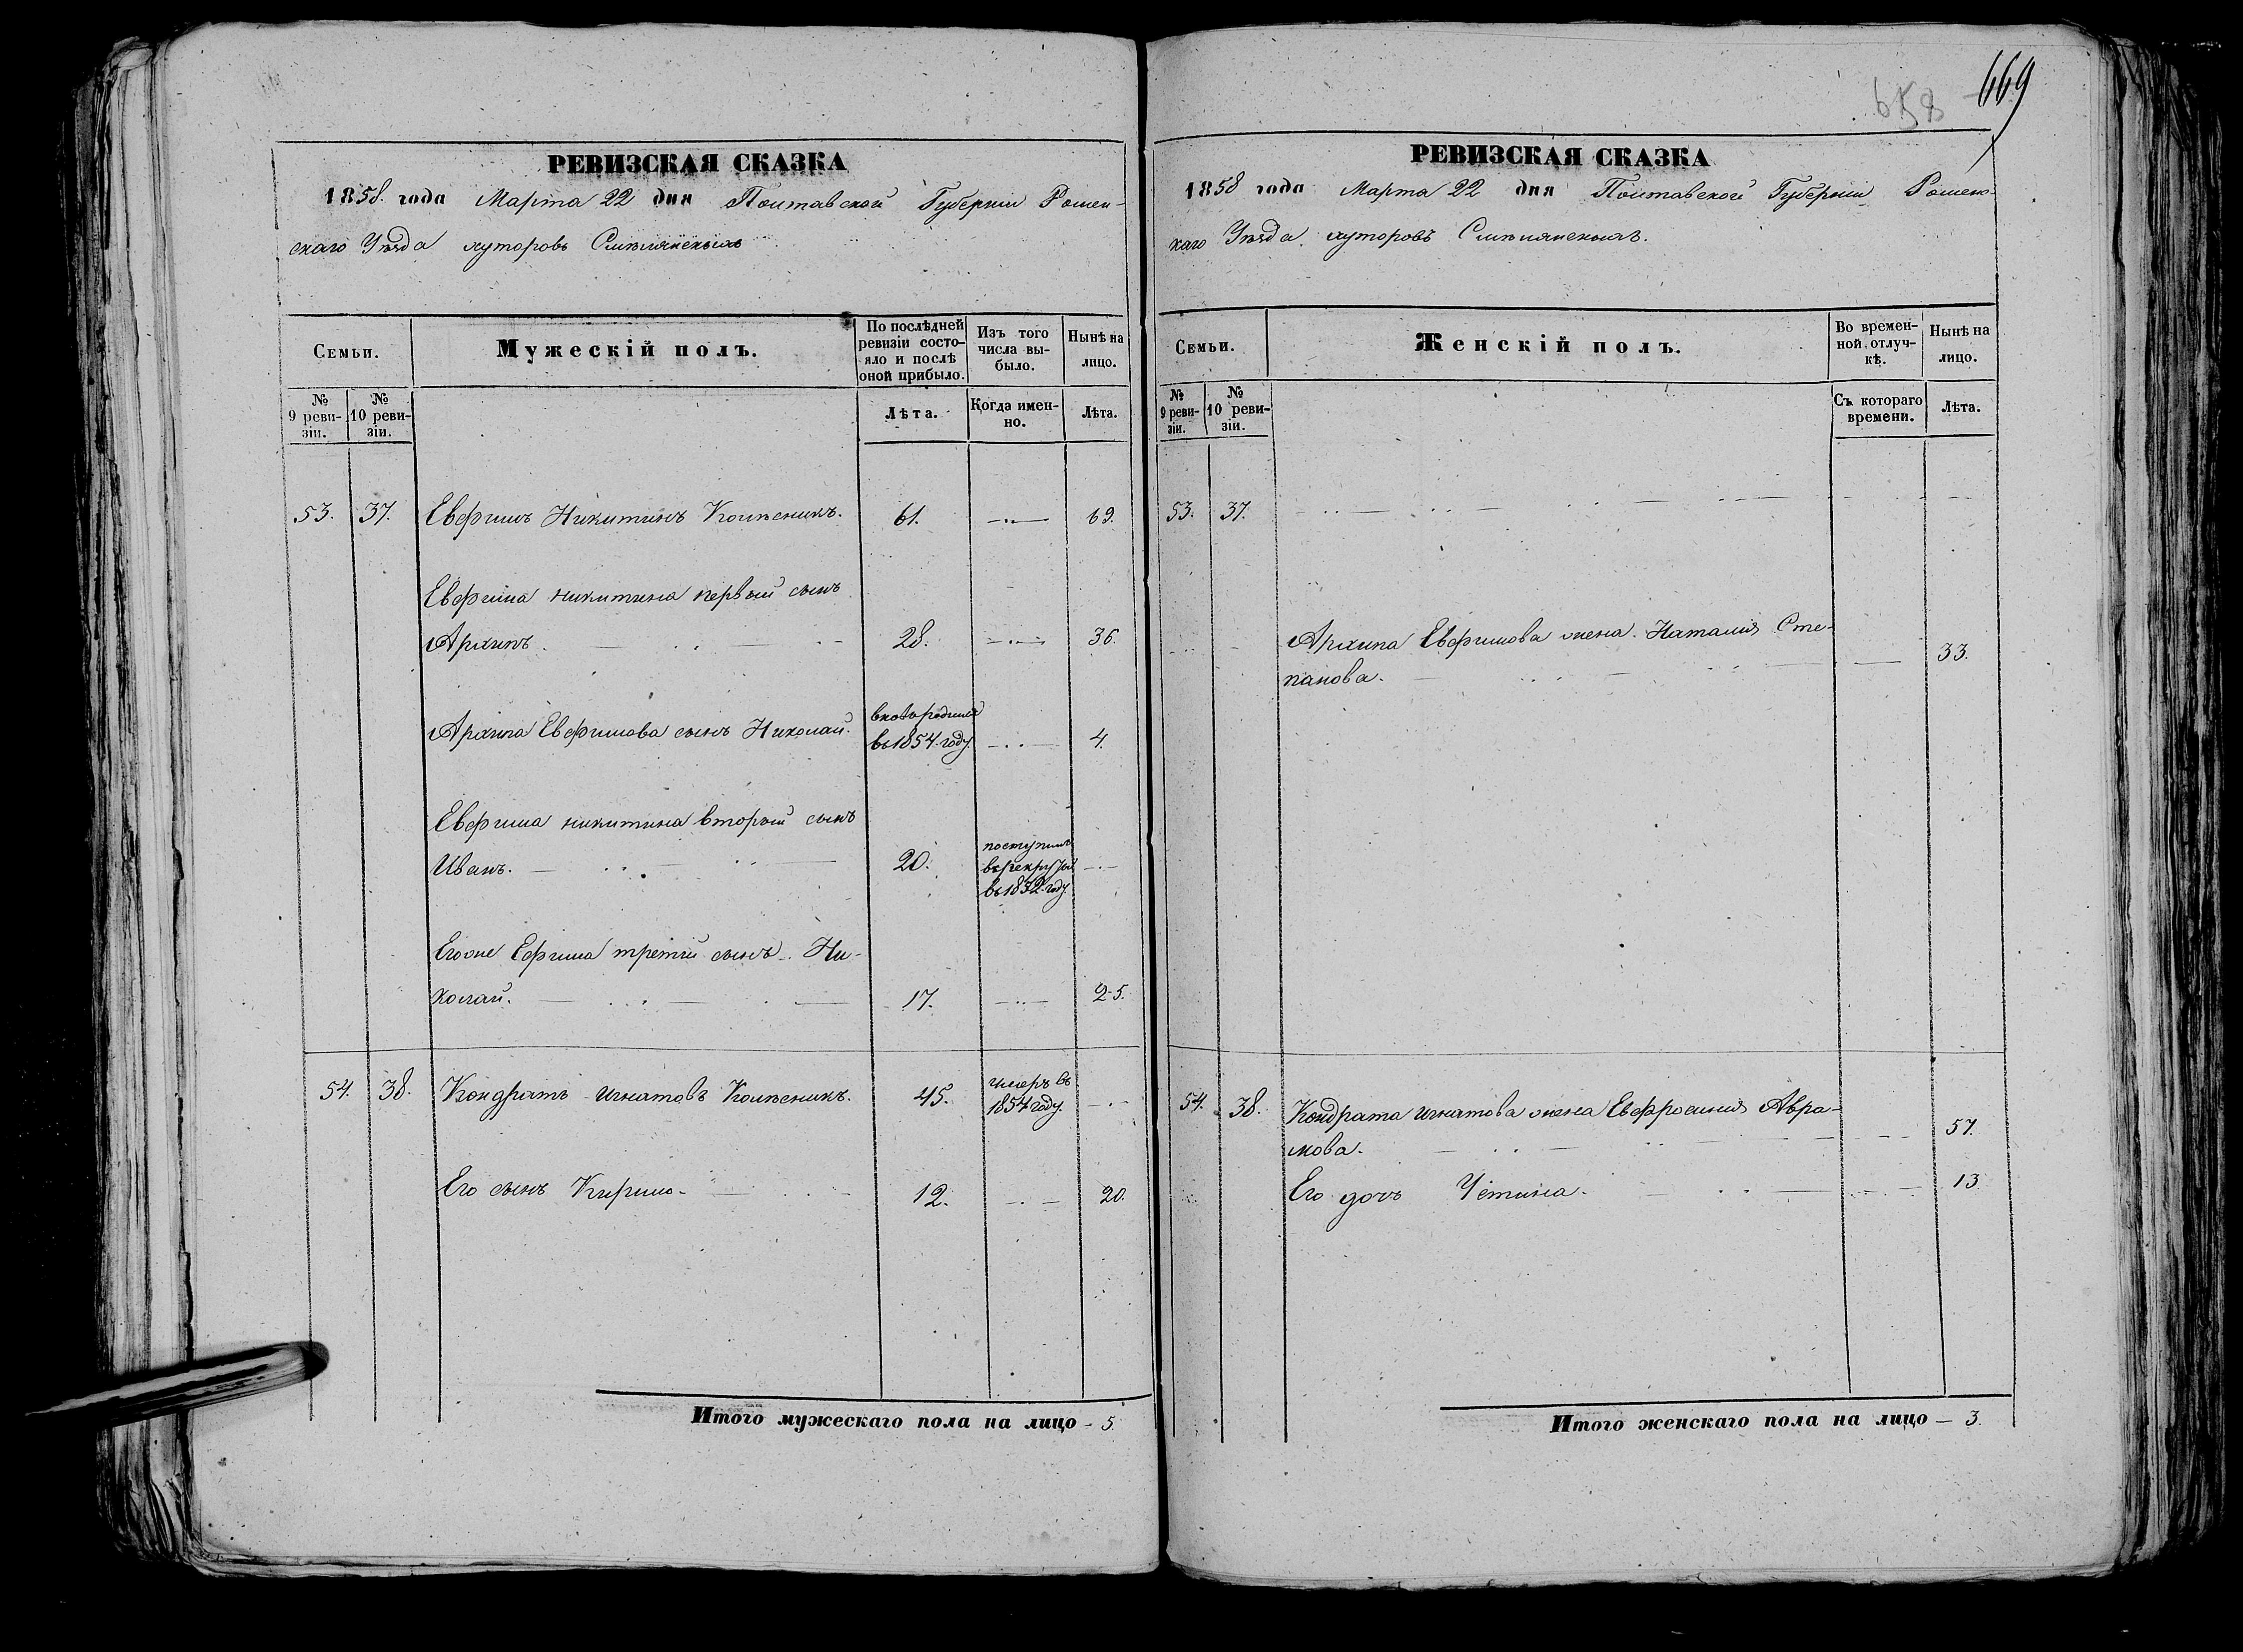 669
658
РЕВИЗСКАЯ СКАЗКА
1858. года Марта 22 дня Полтавской Губерніи Ромен-
скаго Уѣзда хуторовъ
Семьи.
Мужескій полъ.
По послѣдней ревизіи состо-яло и послѣ оной прибыло.
Изъ того числа вы-было.
Нынѣ на лицо.
№ 9 реви-зіи.
№ 10 реви-зіи.
Лѣта.
Когда имен-но.
Лѣта.
53. 37. Евфимъ Никитинъ Колѣсникъ. 61. 69.
Евфима никитина первый сынъ
Архипъ. 28. 36.
Архипа Евфимова сынъ Николай. вновь родился
въ 1854. году. 4.
Евфима никитина вторый сынъ
Иванъ. 20. поступилъ
въ рекруты
въ 1852. году.
Егоже Ефима третій сынъ Ни-
колай. 17. 25.
54. 38. Кондратъ игнатовъ Колѣсникъ. 45. умеръ въ
1854 году.
Его сынъ Кирило. 12. 20.
Итого мужескаго пола на лицо - 5.
РЕВИЗСКАЯ СКАЗКА
1858 года Марта 22 дня Полтавской Губерніи Роменс-
каго Уѣзда хуторовъ
Семьи.
Женскій полъ.
Во времен-ной отлуч-кѣ.
Нынѣ на лицо.
№ 9 реви-зіи.
№ 10 реви-зіи.
Съ котораго времени.
Лѣта.
53. 37.
Архипа Евфимова жена Наталія Сте-
панова. 33.
54. 38. Кондрата игнатова жена Евфросинія Авра-
мова. 57.
Его дочь Устина. 13
Итого женскаго пола на лицо — 3.